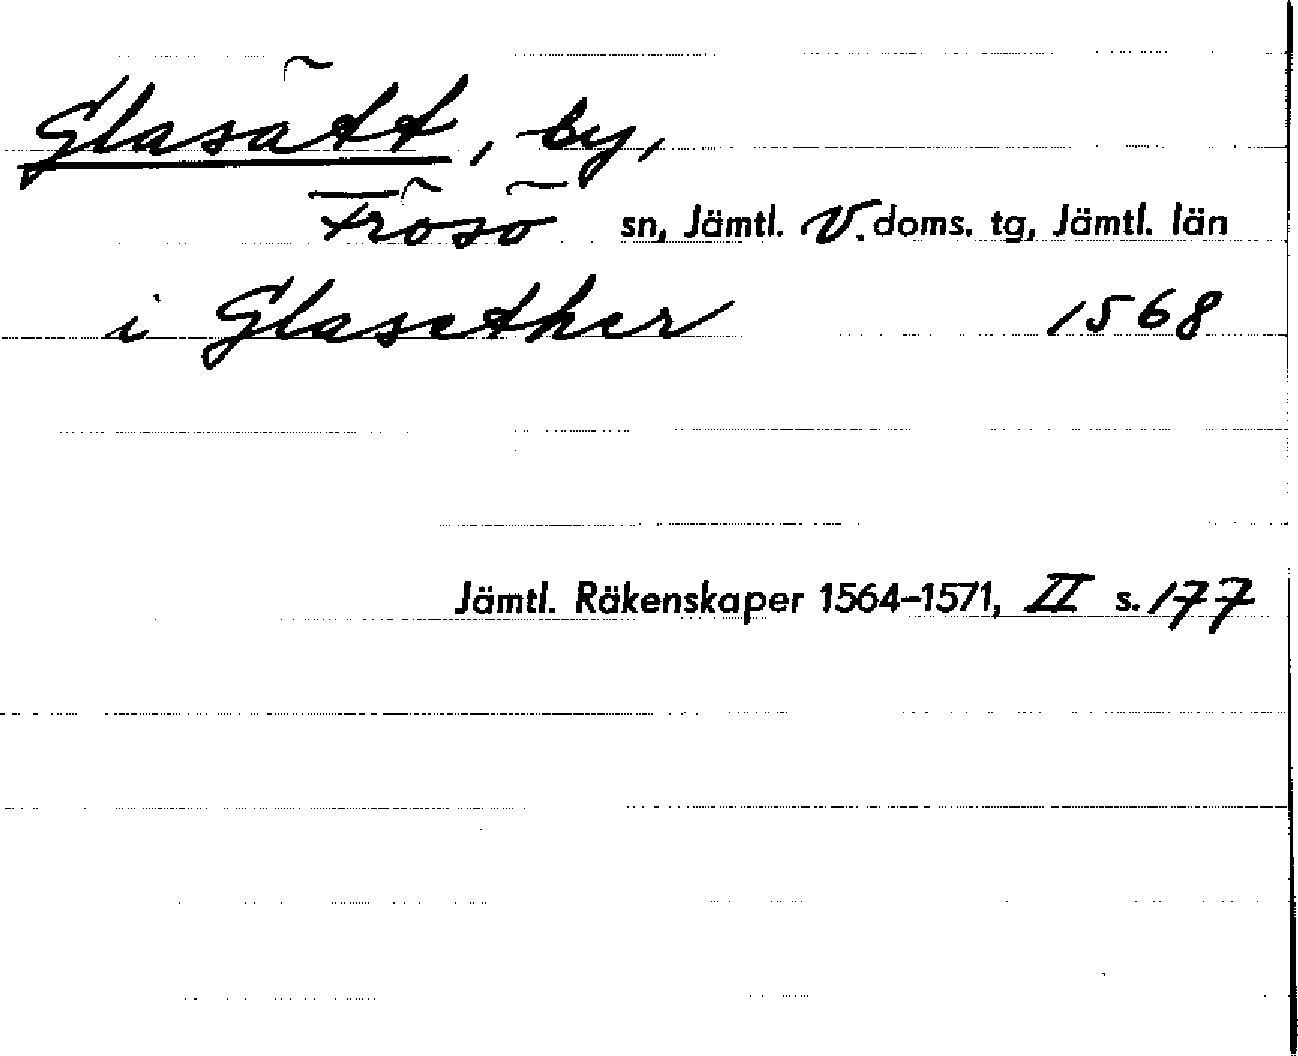 Glasätt, by,
Frösö sn, Jämtl. V. doms. tg, Jämtl. län
i Glasether 1568
Jämtl. Räkenskaper 1564-1571, II s. 177